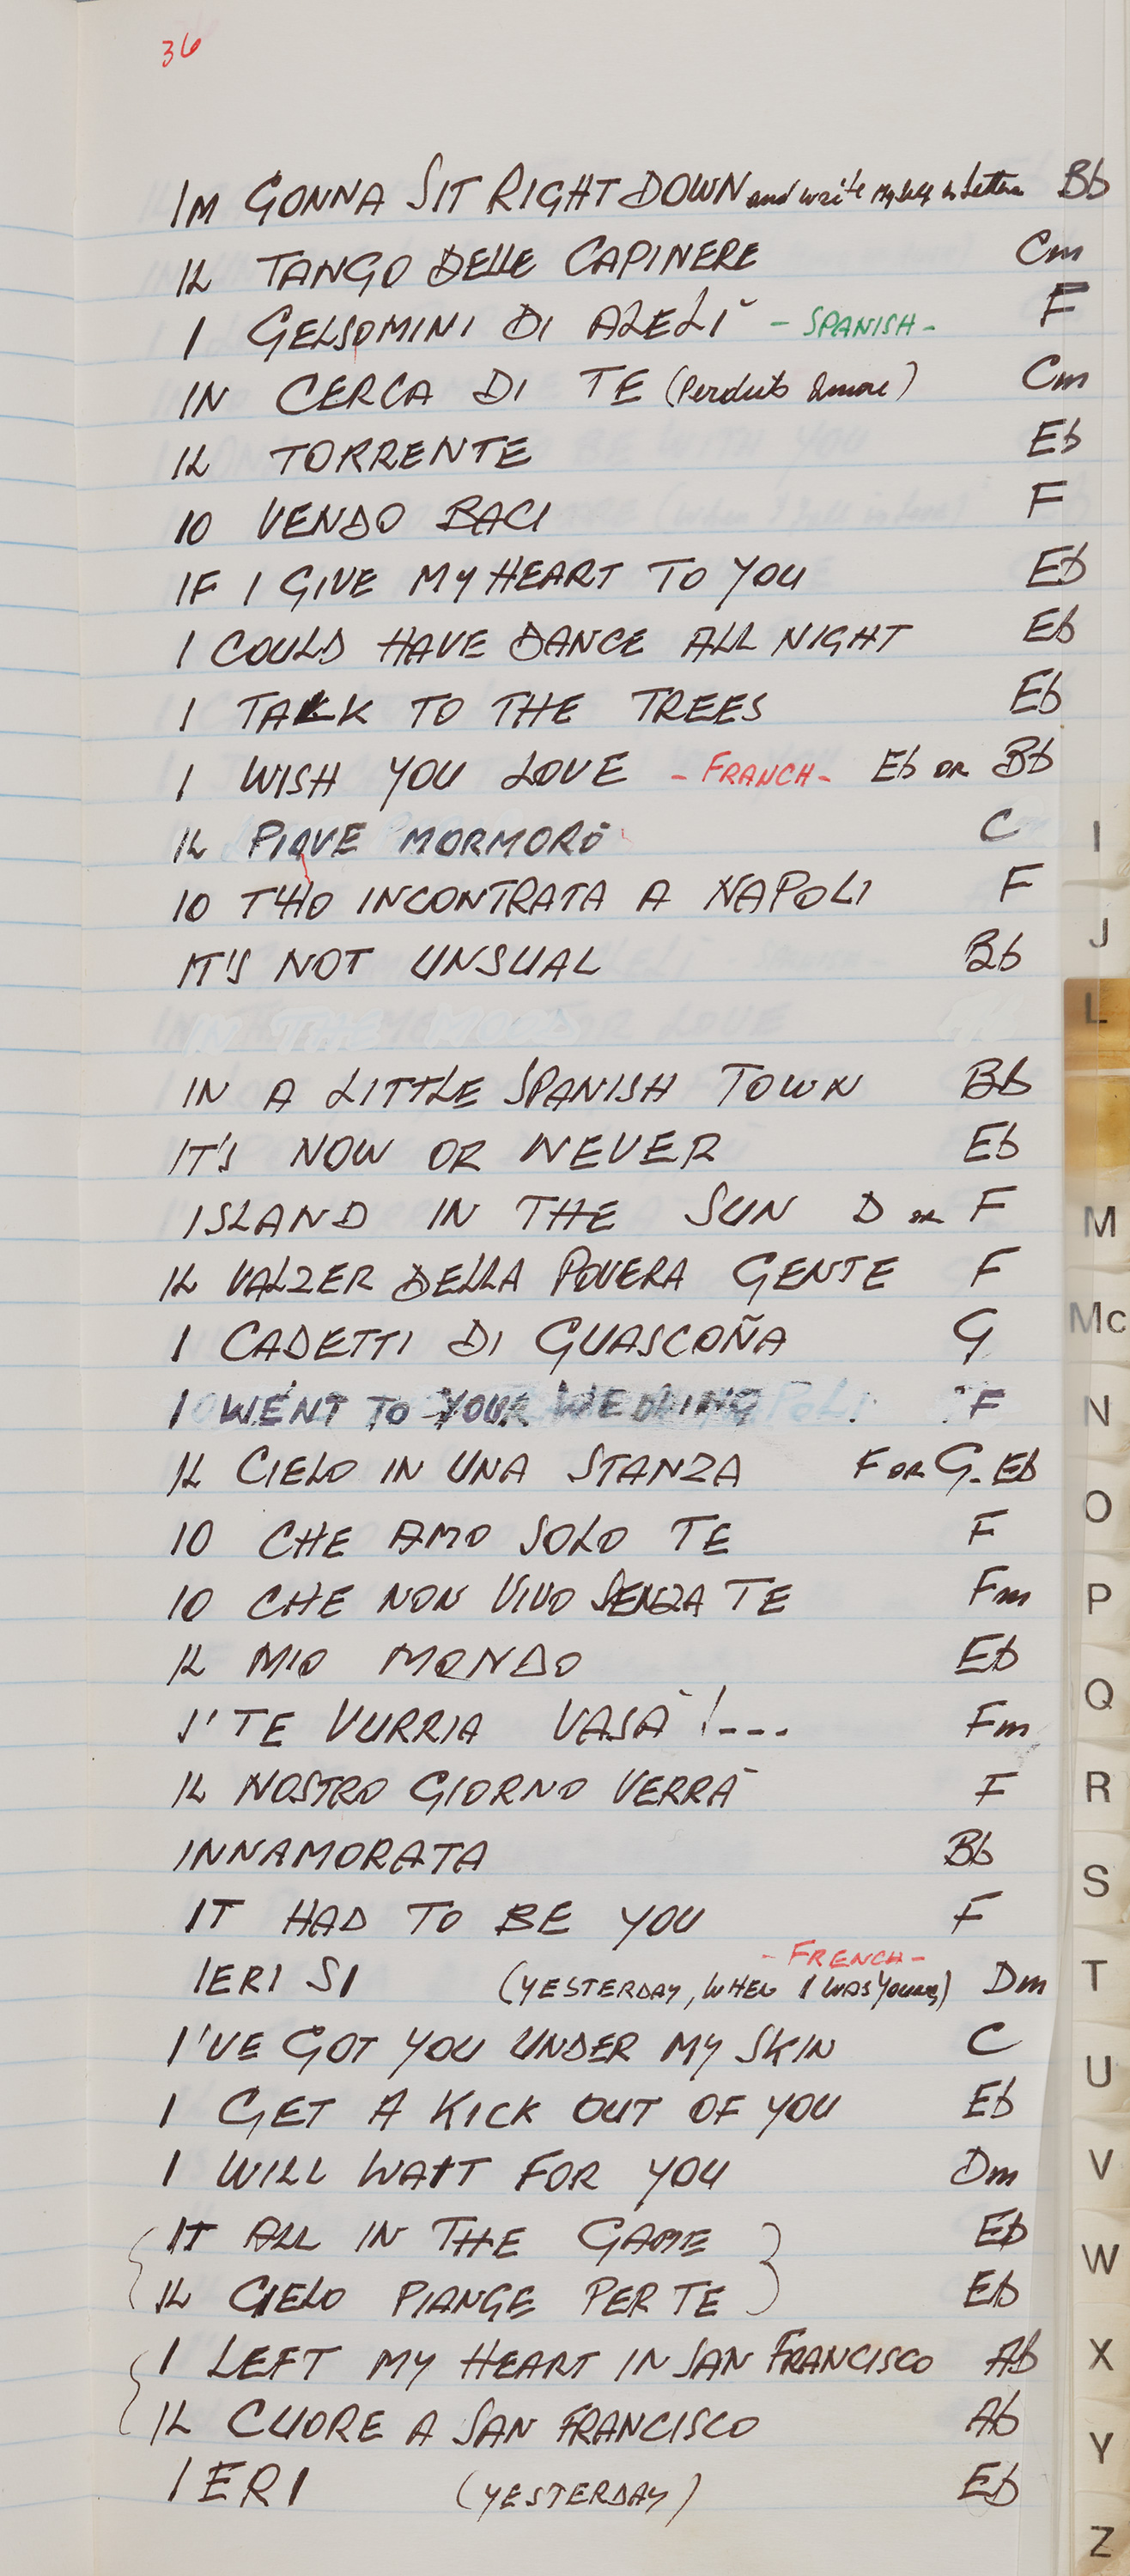 36
IM GONNA SIT RIGHT DOWN and write Myself a Letter Bb
IL TANGO DELLE CAPINERE Cm
I GELSOMINI DI ALELÌ - SPANISH - F
IN CERCA DI TE (Perduto Amore) Cm
IL TORRENTE Eb
IO VENDO BACI F
IF I GIVE MY HEART TO YOU Eb
I COULD HAVE DANCE ALL NIGHT Eb
I TALK TO THE TREES Eb
I WISH YOU LOVE - FRANCH - Eb OR Bb
IL PIAVE MORMORÒ C
IO T'HO INCONTRATA A NAPOLI F
IT'S NOT UNSUAL Bb
IN THE MOOD
IN A LITTLE SPANISH TOWN Bb
IT'S NOW OR NEVER Eb
ISLAND IN THE SUN D OR F
IL VALZER DELLA POVERA GENTE F
I CADETTI DI GUASCOÑA G
I WENT TO YOUR WEDDING F
IL CIELO IN UNA STANZA F OR G - Eb
IO CHE AMO SOLO TE F
IO CHE NON VIVO SENZA TE Fm
IL MIO MONDO Eb
I' TE VURRIA VASÀ !--- Fm
IL NOSTRO GIORNO VERRÀ F
INNAMORATA Bb
IT HAD TO BE YOU F
- FRENCH -
IERI SI (YESTERDAY, WHEN I WAS YOUNG) Dm
I'VE GOT YOU UNDER MY SKIN C
I GET A KICK OUT OF YOU Eb
I WILL WAIT FOR YOU Dm
IT ALL IN THE GAME Eb
IL CIELO PIANGE PER TE Eb
I LEFT MY HEART IN SAN FRANCISCO Ab
IL CUORE A SAN FRANCISCO Ab
IERI (YESTERDAY) Eb
I
J
L
M
Mc
N
O
P
Q
R
S
T
U
V
W
X
Y
Z